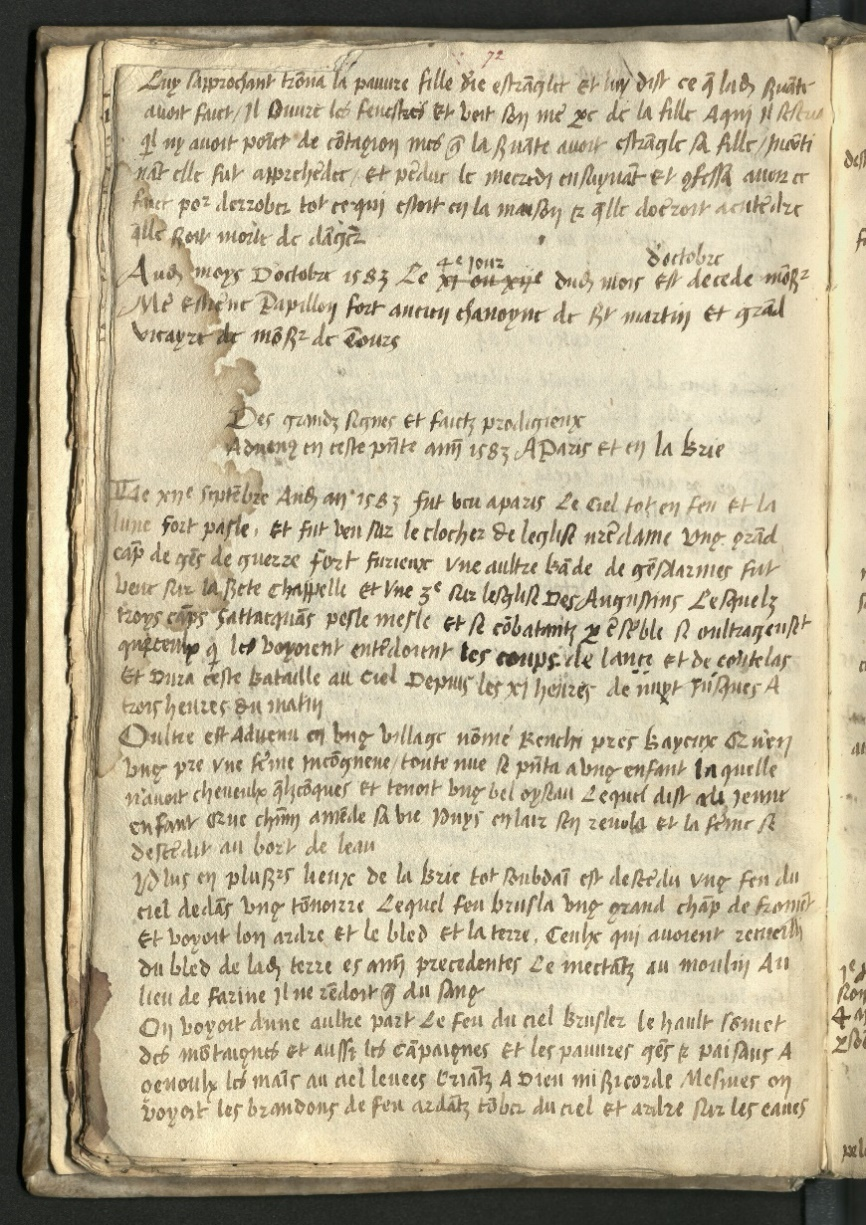 72
Luy saprochant trouva la pauvre fille estranglee Et luy dist ce q̃ lad servãte
avoit faict / Il Ouvre les fenestres Et voit son me de la fille Aqui Il
qĩl ny avoit point de cõtagion mes q̃ la servãte avoit estrãgle sa fille /
nãt elle fut apprehẽdee / Et pẽdue le mecredi ensuyvãt Et cõfessa avoir ce
faict por desrober tot ce qui estoit en la maison
q̃lle soit morte de dãger
Aud moys Doctobre 1583 Le 4e Jour dud mois doctobre Est decede mõsr
Me Estiene Papillon fort ancien chanoyne de St martin Et grãd
vicayre de mõsr de Tours
Des grandz signes Et faictz prodigieux
Advenuz en ceste pñte annee 1583 A Paris Et en la Brie
Le xiie septẽbre Aud an 1583 fut veu aparis Le Ciel tot en feu Et la
lune fort pasle, Et fut veu sur le clocher de leglise nre dame Ung grãd
cãp de gẽs de guerre fort furieux Une aultre bãde de gẽsdarmes fut
veue sur la Ste Chappelle Et Une 3e sur leglise Des Augustins Lesquelz
troys cãps sattacquãs pesle mesle Et se cõbatantz ẽsẽble se oultrageust
q̃ les voyoient entẽdoient les coups de lance Et de coutelas
Et Dura ceste bataille au Ciel Depuis les xi heures de nuyt Jusques A
trois heures du matin
Oultre est Advenu en Ung village nõmé Renchi pres bayeux
Ung pre Une fẽme Incõgneue / toute nue se pñta a ung enfant laquelle
navoit cheveulx q̃lzcõques Et tenoit Ung bel oyseau Lequel dist Jeune
enfant Que chũn amẽde sa vie Puys en lair sen revola Et la fẽme se
descẽdit au bort de leau
Plus en plusrs lieux de la Brie tot soubdaĩ est descẽdu Ung feu du
ciel dedãs Ung tõnoirre Lequel feu brusla Ung grand chãp de fromẽt
Et voyoit lon ardre Et le bled Et la terre. Ceulx qui avoient recueilly
du bled de lad terre es annees precedentes Le mectãtz au moulin Au
lieu de farine Il ne rẽdoit q̃ du sang
On voyoit dune aultre part Le feu du ciel Brusler le hault sõmet
des mõtaignes Et aussi les Cãpaignes Et les pauvres gẽs & paisans A
genoulx les maĩs au ciel levees Criãtz A Dieu misericorde Mesmes on
voyoit les brandons de feu ardãtz tõber du ciel Et ardre sur les eaues